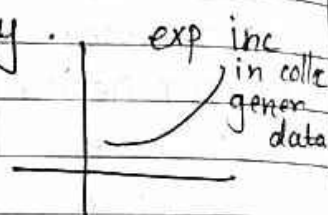 y.
exp inc
in colle
gener
data